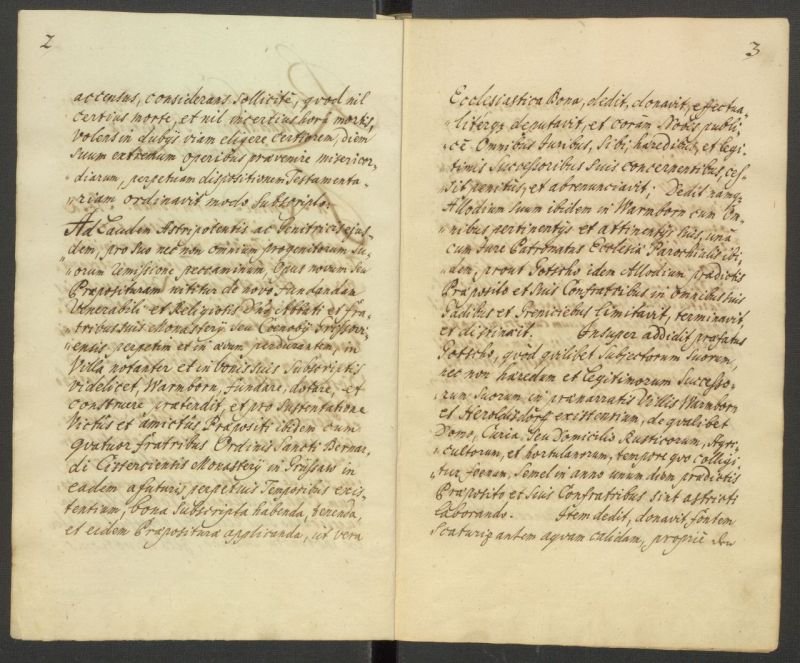 2
accensus, considerans sollicitè, qvod nil
certius morte, et nil incertius horâ mortis,
volens in dubÿs viam eligere certiorem, diem
suum extremum operibus prævenire misericor„
„diarum, perpetuam dispositivum Testamenta„
„riam ordinavit modo subscripto.
Ad Laudem Astripotentis ac Genitricis ejus„
„dem, pro suo nec non omnium progenitorum su„
„orum remissione peccaminum, Opus novum seu
Præposituram nititur de novo fundandam
Venerabili et Religiosis Dno Abbati et fra„
„tribus suis Monasterÿ seu Coenobÿ Grissovi„
„ensis perpetim et in ævum perdurantem, in
Villa notanter et in bonis suis subscriptis
videlicet, Warmborn, fundare, dotare, et
construere prætendit, et pro sustentatione
Victus et amictus Præpositi ibidem cum
qvatuor fratribus Ordinis Sancti Bernar„
di Cistenciensis Monasterÿ in Grÿssavo in
eadem a futuris perpetuis Temporibus exis„
tentium, bona subscripta habenda, tenenda,
et eidem Præposituræ applicanda, ut vera
3
Ecclesiastica Bona, dedit, donavit, effectua„
„literq deputavit, et coràm Nobis publi„
„cè Omnibus Iuribus, sibi, hæredibus et legi„
timis Successoribus suis concernentibus, ces„
„sit penitùs, et abrenunciavit; Dedit namq
Allodium suum ibidem in Warmborn cum Om„
„nibus pertinentÿs et attinentÿs suis, unà
cum Iure Patronatus Ecclesiæ Parochialis ibi„
„dem, prout Gotscho idem Allodium prædictis
Præposito et suis Confratribus in Omnibus suis
Gadibus et Greniciebus limitavit, terminavit
et distinxit. Insuper addidit præfatus
Gotscho, qvod qvilibet subjectorum suorum,
nec non hæredum et legitimorum Successo„
„rum suorum in prænarratis Villis Warmborn
et Heroldsdorf existentium, de qvalibet
Domo, Curia, seu Domicilio Rusticorum, Agri„
„cultorum, et hortulanorum, tempore qvo colligi„
„tur foenum, semel in anno unum diem prædictis
Præposito et suis Confratribus sint astricti
laborando. Item dedit, donavit fontem
scaturizantem aqvam calidam, propriè seu